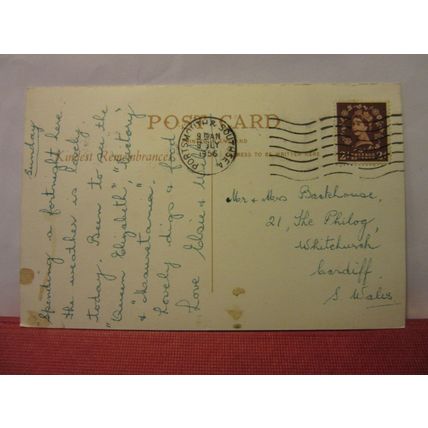 POST CARD
Kindest Remembrances
ADDRESS TO BE WRITTEN HERE
PORTSMOUTH & SOUTHSEA
9 JLY
1956
Sunday
Spending a fortnight here.
the weather is lovely
today. Been to see the
"Queen Elizabeth", "Victory"
& "Mauretania".
Lovely digs & food
Love Elsie &
Mr & Mrs Backhouse,
21, The Philog,
Whitchurch
Cardiff.
S Wales